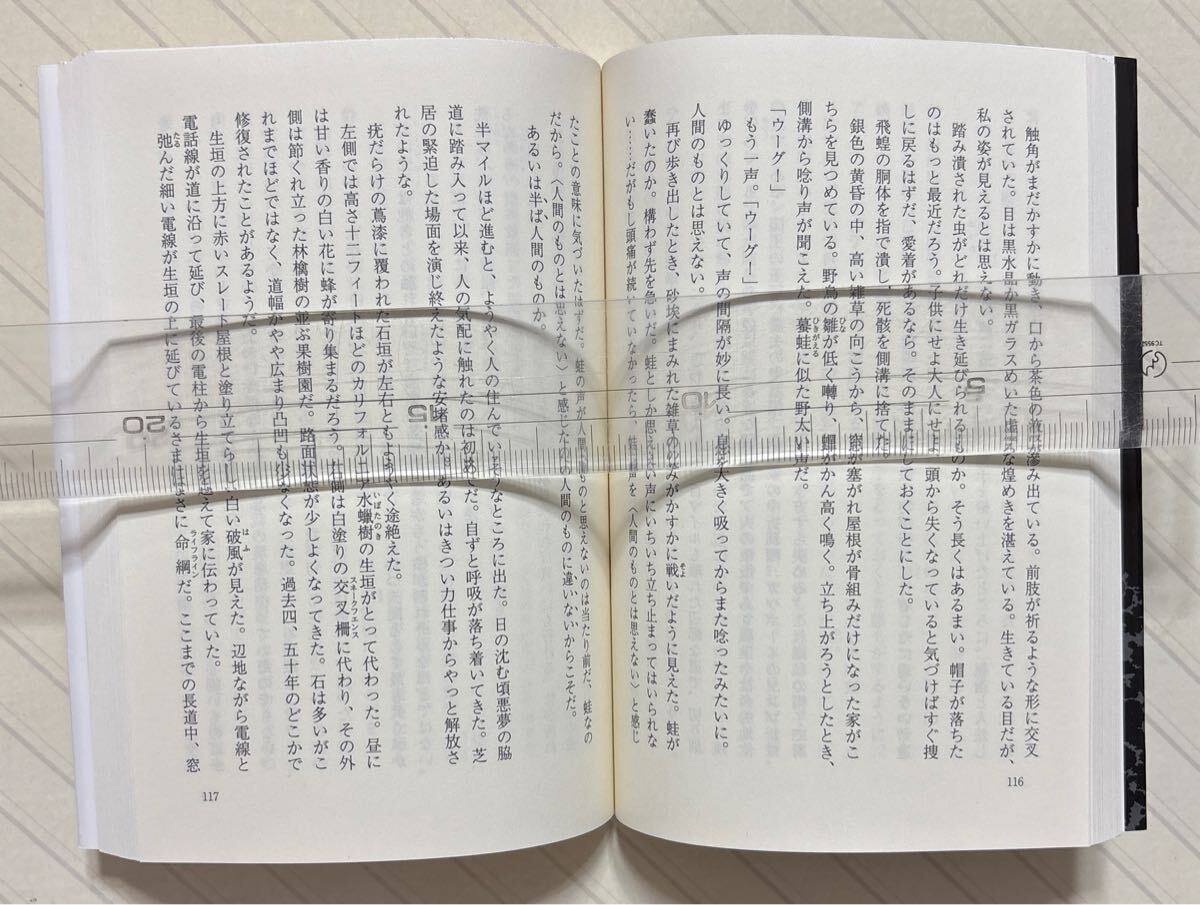 触角がまだかすかに動き、口から茶色の液が滲み出ている。前肢が祈るような形に交叉
されていた。目は黒水晶か黒ガラスめいた虚ろな煌めきを湛えている。生きている目だが、
私の姿が見えるとは思えない。
踏み潰された虫がどれだけ生き延びられるものか。そう長くはあるまい。帽子が落ちた
のはもっと最近だろう。子供にせよ大人にせよ、頭から失くなっていると気づけばすぐ捜
しに戻るはずだ、愛着があるなら。そのままにしておくことにした。
飛蝗の胴体を指で潰し、死骸を側溝に捨てた。
銀色の黄昏の中、高い雑草の向こうから、窓が塞がれ屋根が骨組みだけになった家がこ
ちらを見つめている。野鳥の雛が低く囀り、蟬がかん高く鳴く。立ち上がろうとしたとき、
側溝から唸り声が聞こえた。蟇蛙に似た野太い声だ。
「ウーグー！」
もう一声。「ウーグー！」
ゆっくりしていて、声の間隔が妙に長い。息を大きく吸ってからまた唸ったみたいに。
人間のものとは思えない。
再び歩き出したとき、砂埃にまみれた雑草の茂みがかすかに戦いだように見えた。蛙が
蠢いたのか。構わず先を急いだ。蛙としか思えない声にいちいち立ち止まってはいられな
い……だがもし頭痛が続いていなかったら、蛙の声を〈人間のものとは思えない〉と感じ
116
たことの意味に気づいたはずだ。蛙の声が人間のものと思えないのは当たり前だ、蛙なの
だから。〈人間のものとは思えない〉と感じたのは人間のものに違いないからこそだ。
あるいは半ば人間のものか。
半マイルほど進むと、ようやく人の住んでいそうなところに出た。日の沈む頃悪夢の脇
道に踏み入って以来、人の気配に触れたのは初めてだ。自ずと呼吸が落ち着いてきた。芝
居の緊迫した場面を演じ終えたような安堵感か。あるいはきつい力仕事からやっと解放さ
れたような。
疣だらけの蔦漆に覆われた石垣が左右ともようやく途絶えた。
左側では高さ十二フィートほどのカリフォルニア水蠟樹の生垣がとって代わった。昼に
は甘い香りの白い花に蜂が寄り集まるだろう。右側は白塗りの交叉柵に代わり、その外
側は節くれ立った林檎樹の並ぶ果樹園だ。路面状態が少しよくなってきた。石は多いがこ
れまでほどではなく、道幅がやや広まり凸凹も少なくなった。過去四、五十年のどこかで
修復されたことがあるようだ。
生垣の上方に赤いスレート屋根と塗り立てらしい白い破風が見えた。辺地ながら電線と
電話線が道に沿って延び、最後の電柱から生垣を越えて家に伝わっていた。
弛んだ細い電線が生垣の上に延びているさまはまさに命綱だ。ここまでの長道中、窓
117
5
10
15
20